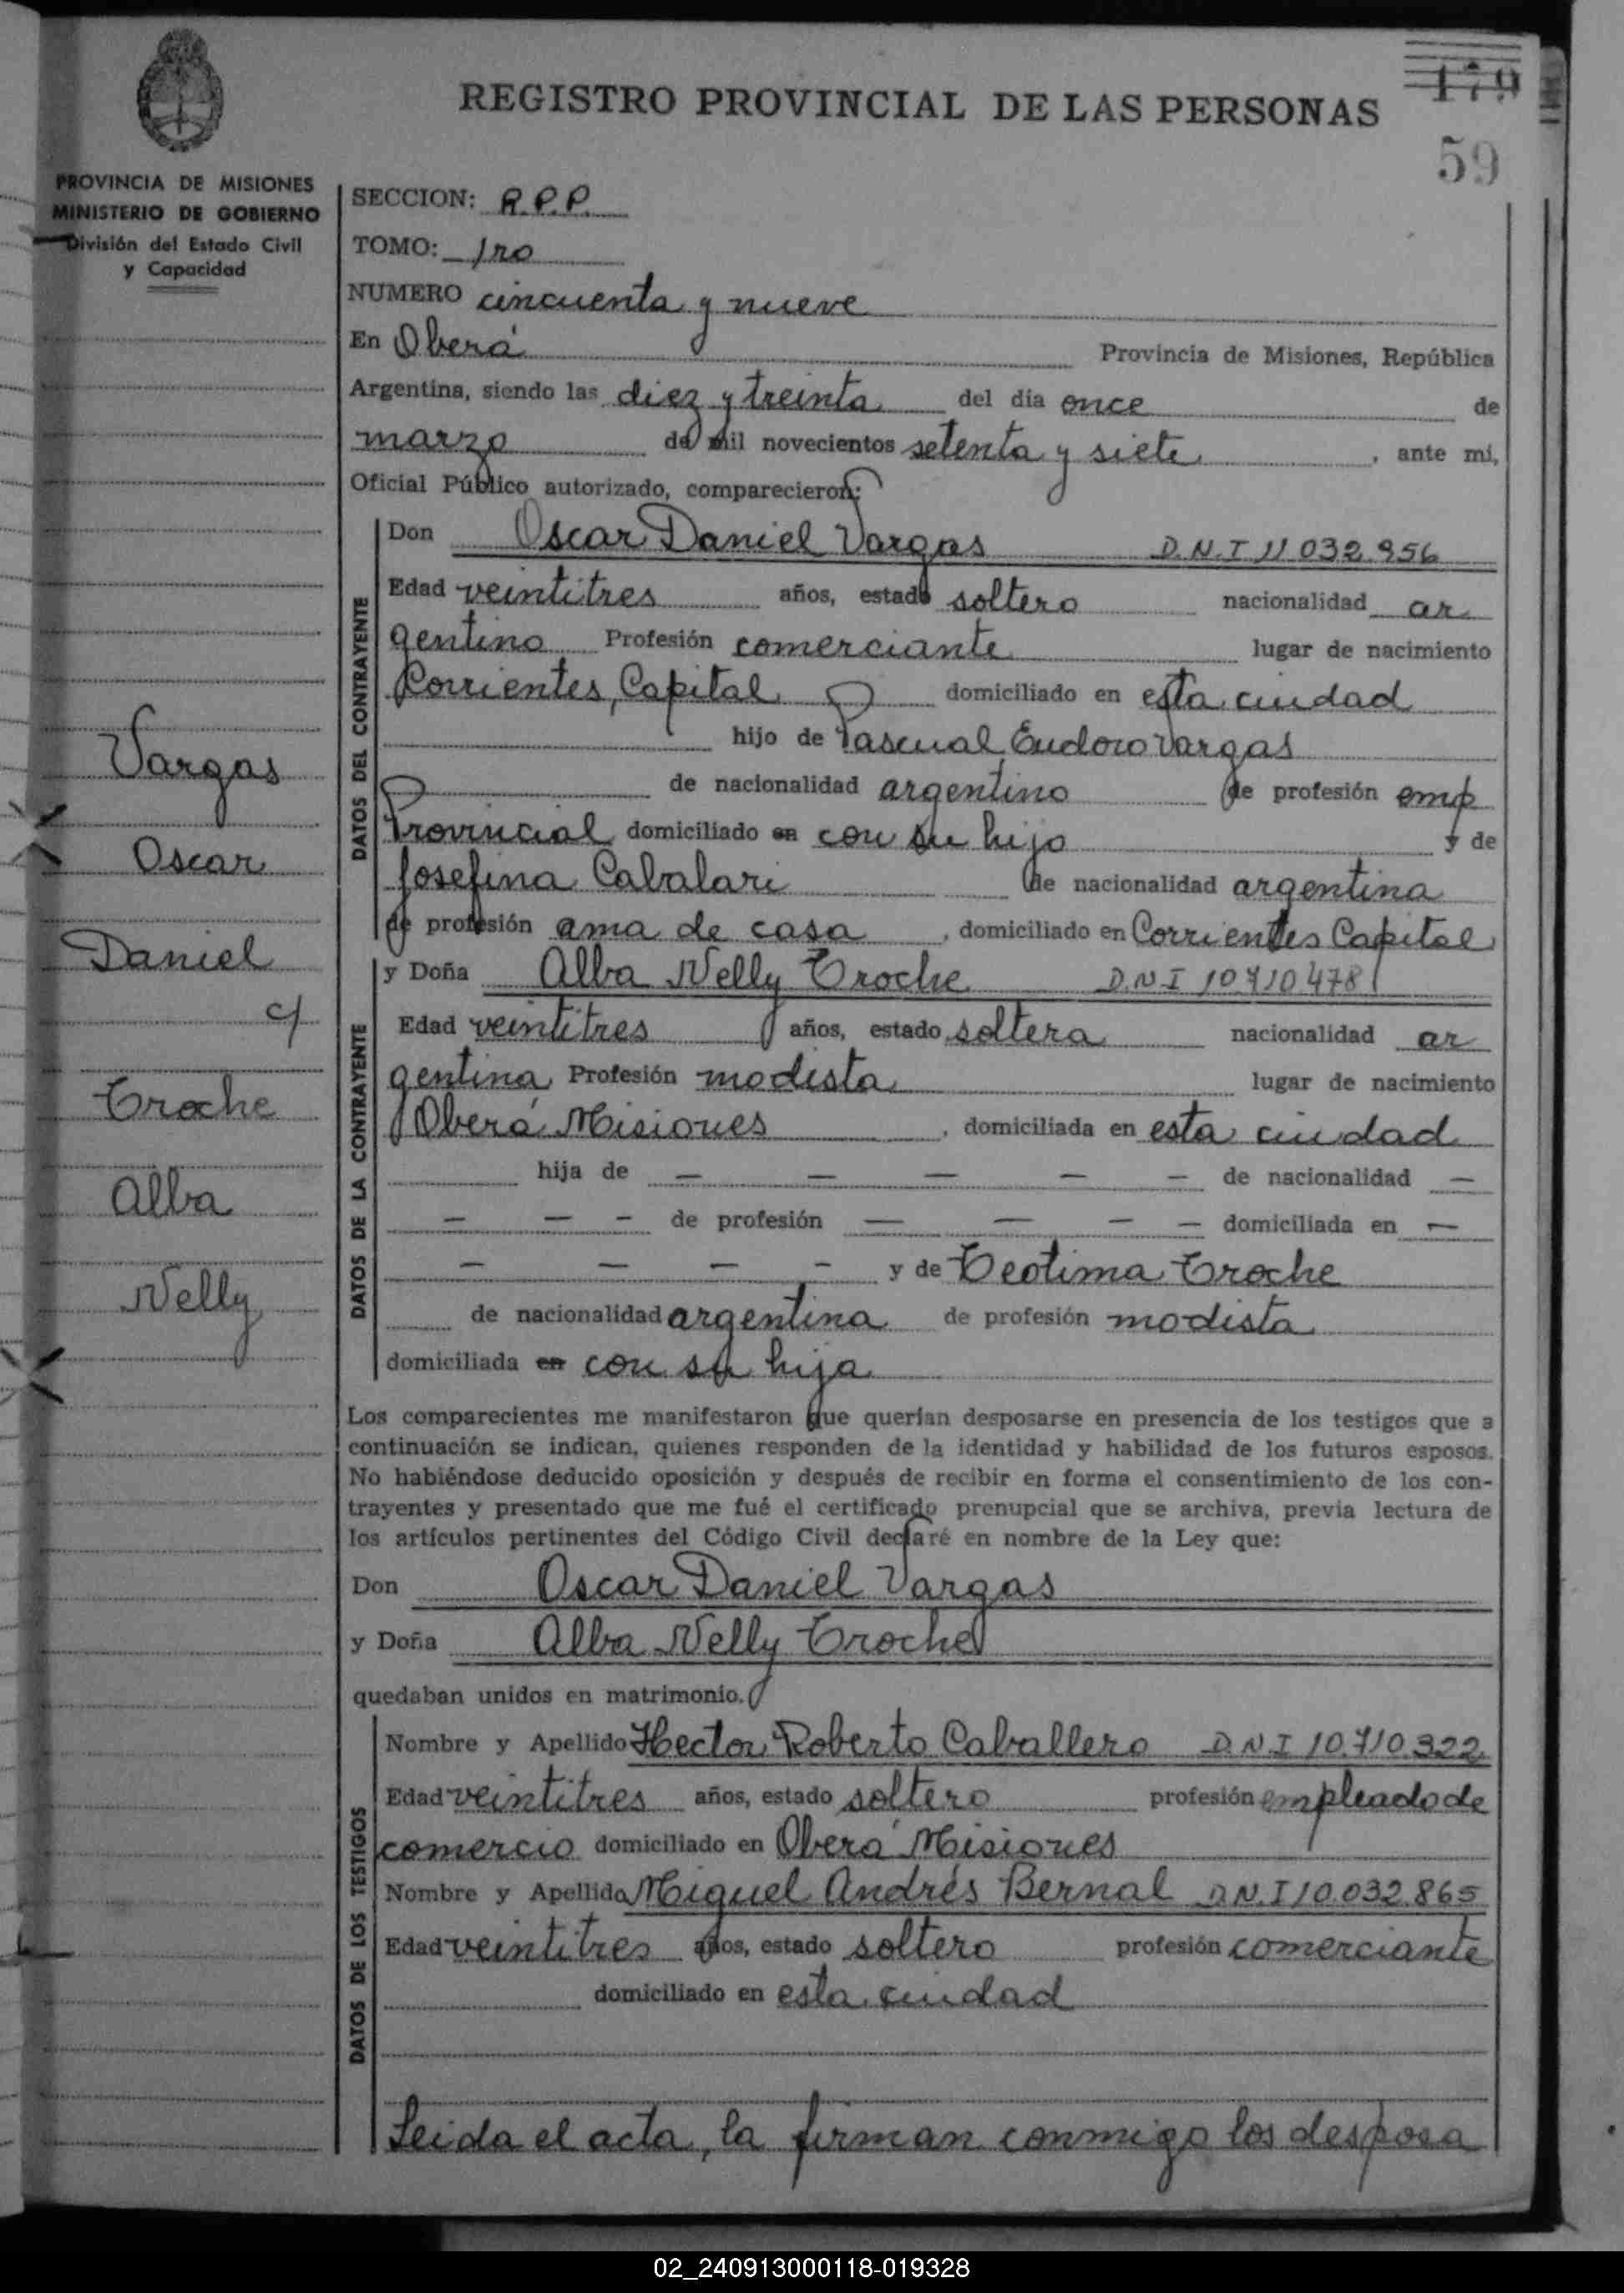 REGISTRO PROVINCIAL DE LAS PERSONAS
179
59
PROVINCIA DE MISIONES
MINISTERIO DE GOBIERNO
División del Estado Civil
y Capacidad
Vargas
Oscar
Daniel
c/
Troche
Alba
Nelly
SECCION: R.P.P.
TOMO: 1ro
NUMERO cincuenta y nueve
En Oberá Provincia de Misiones, República
Argentina, siendo las diez y treinta del día once de
marzo de mil novecientos setenta y siete, ante mí,
Oficial Público autorizado, comparecieron:
DATOS DEL CONTRAYENTE
Don Oscar Daniel Vargas D.N.I 11 032.956
Edad veintitres años, estado soltero nacionalidad ar
gentino Profesión comerciante lugar de nacimiento
Corrientes, Capital domiciliado en esta ciudad
hijo de Pascual Eudoro Vargas
de nacionalidad argentino de profesión emp
Provincial domiciliado en con su hijo y de
Josefina Cabalari de nacionalidad argentina
de profesión ama de casa, domiciliado en Corrientes Capital
DATOS DE LA CONTRAYENTE
y Doña Alba Nelly Troche D.N.I 10 710 478
Edad veintitres años, estado soltera nacionalidad ar
gentina Profesión modista lugar de nacimiento
Oberá Misiones, domiciliada en esta ciudad
hija de — — — — — de nacionalidad —
— — — de profesión — — — — domiciliada en —
— — — — y de Teotima Troche
de nacionalidad argentina de profesión modista
domiciliada en con su hija
Los comparecientes me manifestaron que querían desposarse en presencia de los testigos que a
continuación se indican, quienes responden de la identidad y habilidad de los futuros esposos.
No habiéndose deducido oposición y después de recibir en forma el consentimiento de los con-
trayentes y presentado que me fué el certificado prenupcial que se archiva, previa lectura de
los artículos pertinentes del Código Civil declaré en nombre de la Ley que:
Don Oscar Daniel Vargas
y Doña Alba Nelly Troche
quedaban unidos en matrimonio.
DATOS DE LOS TESTIGOS
Nombre y Apellido Hector Roberto Caballero D.N.I 10.710.322
Edad veintitres años, estado soltero profesión empleado de
comercio domiciliado en Oberá Misiones
Nombre y Apellido Miguel Andrés Bernal D.N.I 10.032.865
Edad veintitres años, estado soltero profesión comerciante
domiciliado en esta ciudad
Leida el acta, la firman conmigo los desposa
02_240913000118-019328